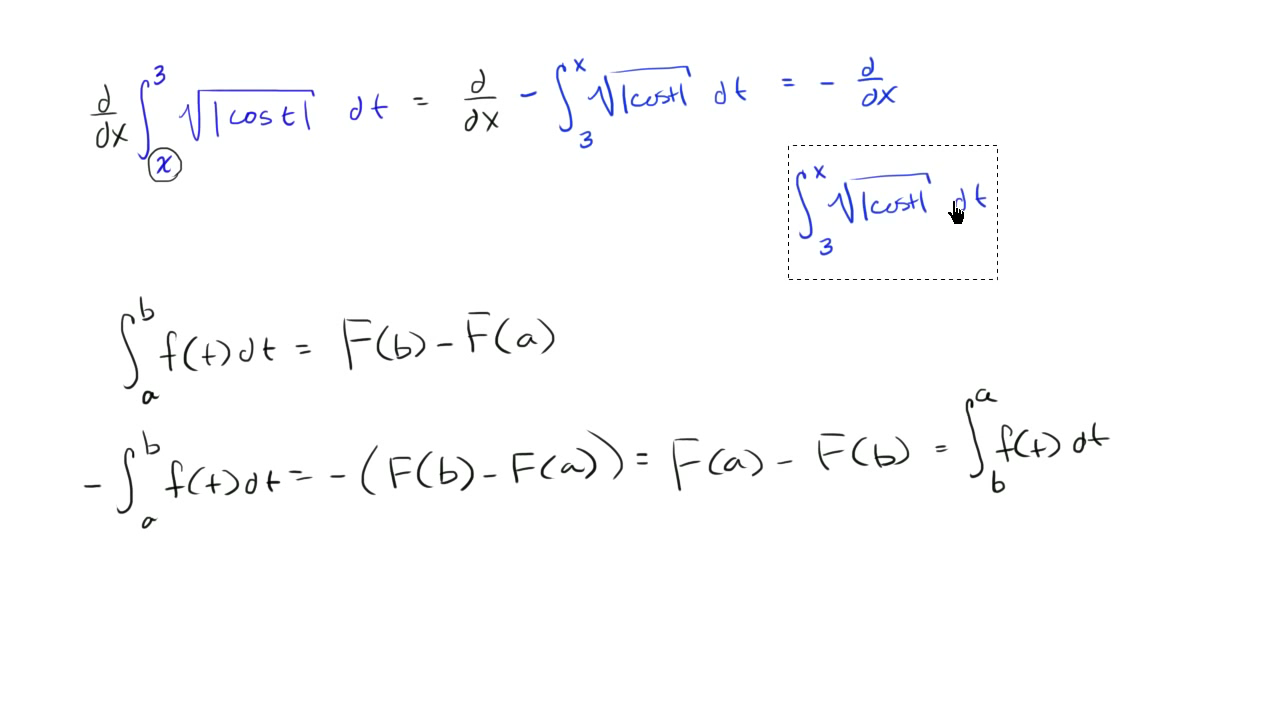 d/dx ∫_x^3 √|cos t| dt = d/dx - ∫_3^x √|cost| dt = - d/dx
∫_3^x √|cost| dt
∫_a^b f(t) dt = F(b) - F(a)
- ∫_a^b f(t) dt = - (F(b) - F(a)) = F(a) - F(b) = ∫_b^a f(t) dt